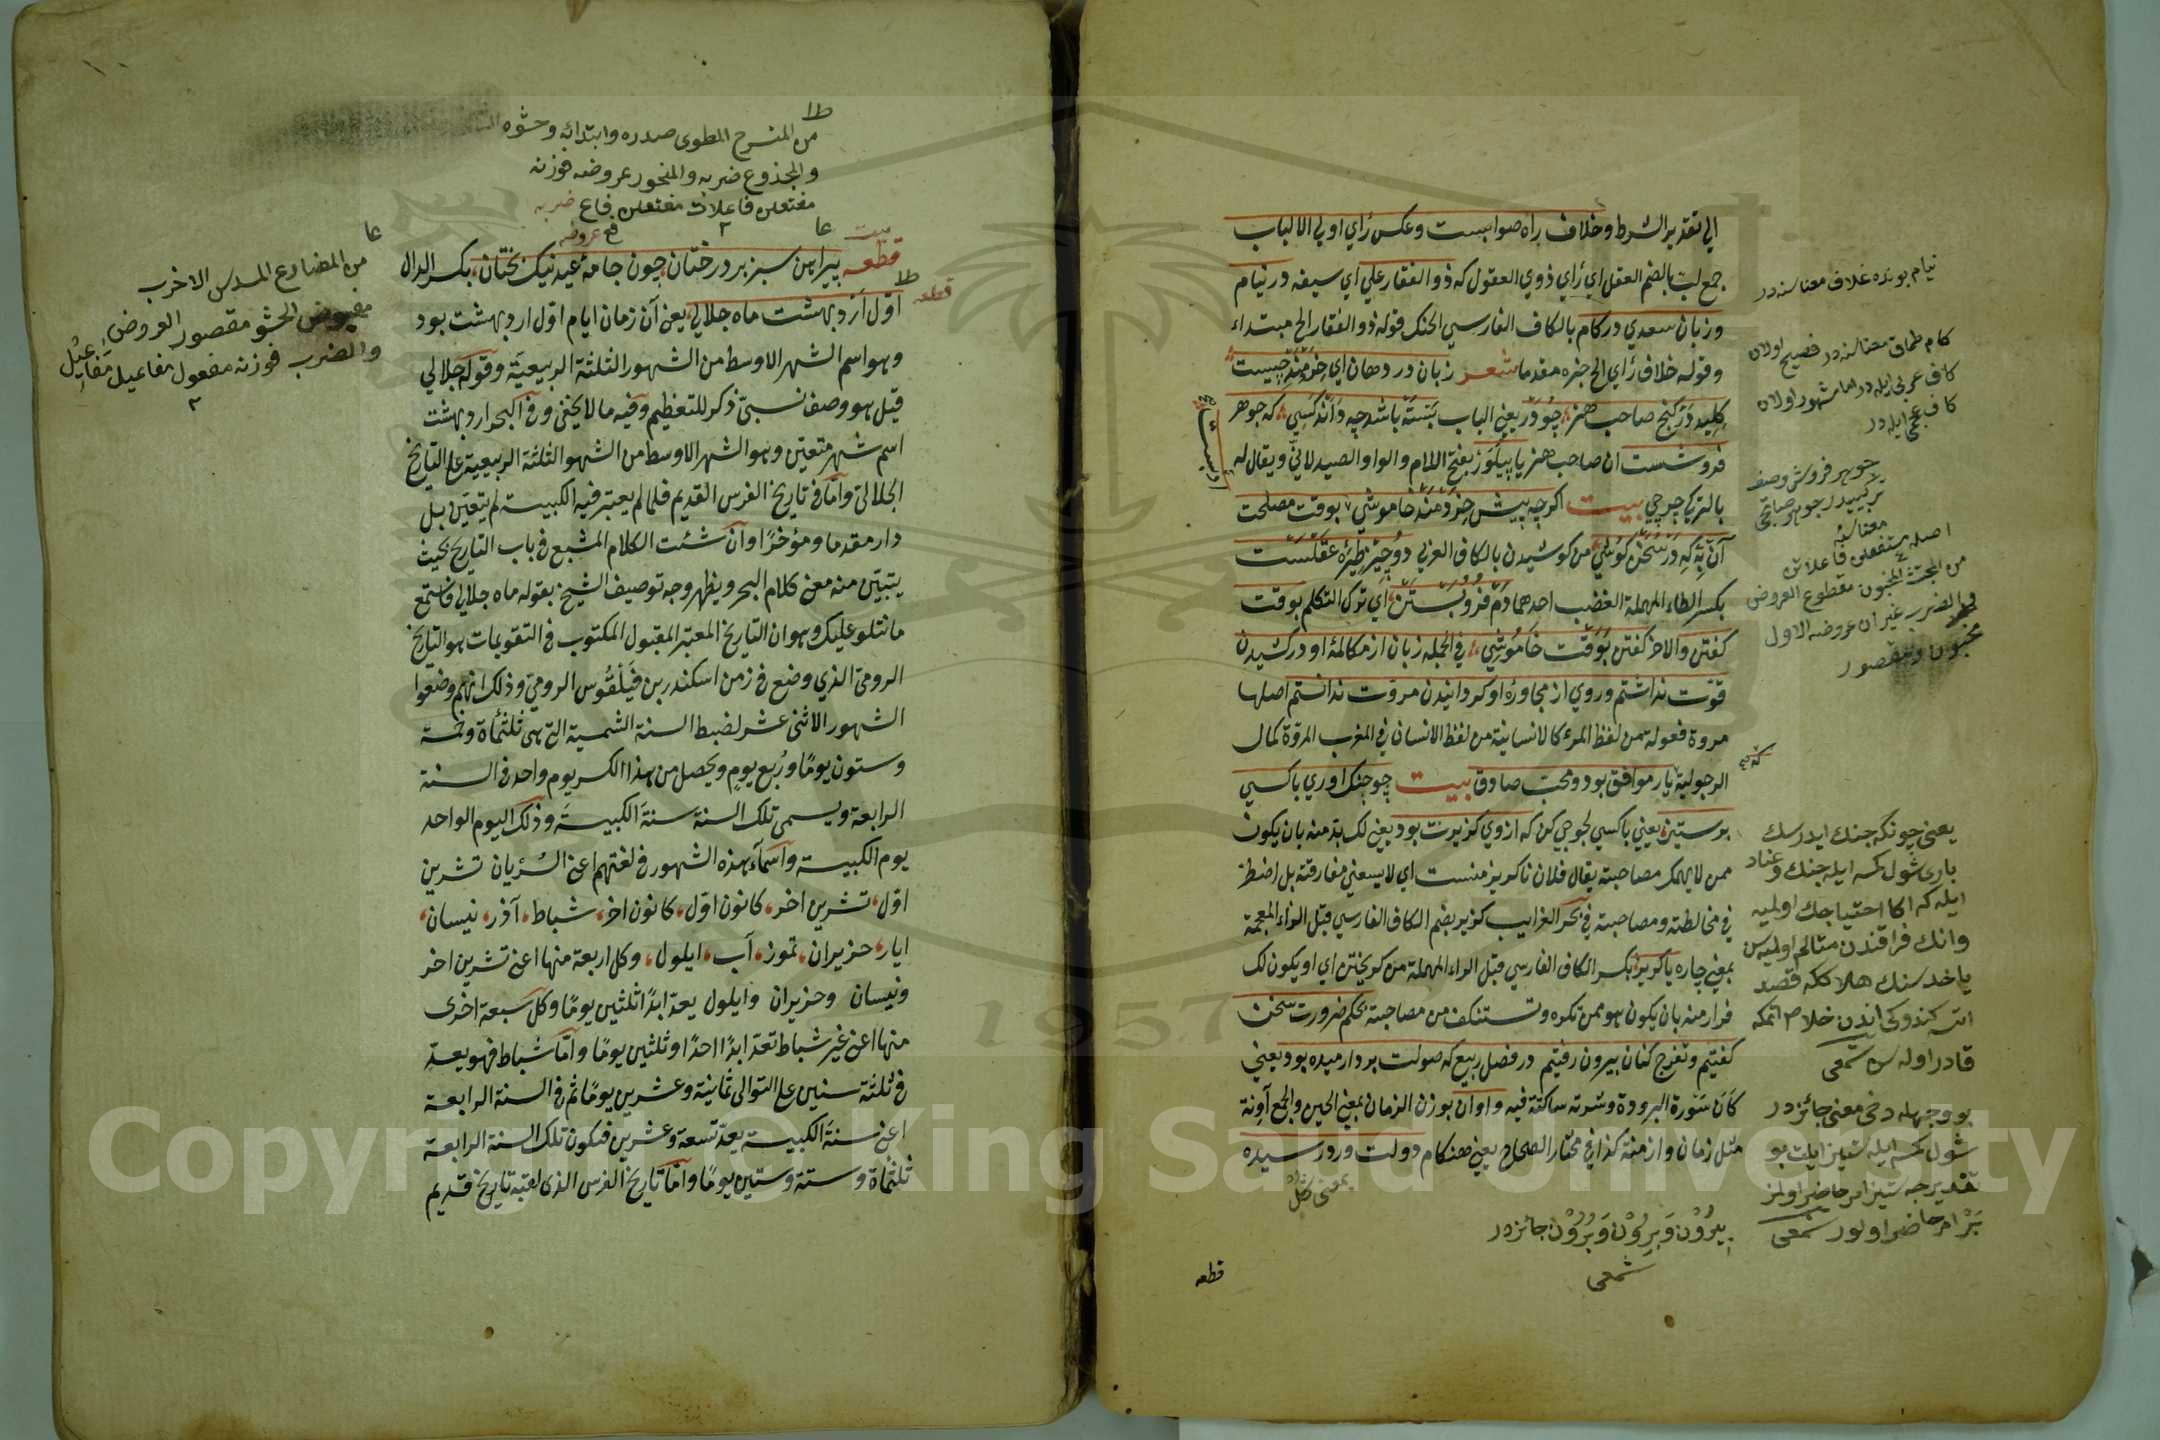 الي تقدير الشرط وخلاف راه صوابست وعكس رأي اولي الالباب
جمع لب بالضم العقل اي رأي ذوي العقول كه ذو الفقار علي اي سيفه در نيام
وزبان سعدي در كام بالكاف الفارسي الحنك قوله ذو الفقار الخ مبتداء
وقوله خلاف رأي الخ خبره مقدما شعر زبان در دهان اي خردمند چيست
كليد در كنج صاحب هنر چو در يعني الباب بسته باشد چه داند كسي كه جوهر
فروشست ان صاحب هنر يا پيلور بفتح اللام والواو الصيدلاني ويقال له
بالتركي چرچي بيت اكرچه پيش خردمند خاموشي بوقت مصلحت
آن به كه در سخن كوشي من كوشيدن بالكاف العربي دو چيز طيرۀ عقلست
بكسر الطاء المهملة الغضب احدهما دم فرو بستن اي ترك التكلم بوقت
كفتن والاخر كفتن بوقت خاموشي في الجمله زبان از مكالمۀ او در كشيدن
قوت نداشتم وروي از محاورۀ او كردانيدن مروت ندانستم اصلها
مروة فعولة من لفظ المرء كالانسانية من لفظ الانسان في المغرب المروّة كمال
الرجولية يار موافق بود ومحب صادق بيت چو جنك اوري باكسي
برستيز يعني باكسي لجوجي كن كه از وي كزيرت بود يعني لك بد منه بان يكون
ممن لا يهمك مصاحبته يقال فلان ناكريز منست اي لا يسعني مفارقته بل اضطر
في مخالطته ومصاحبته في بحر الغرايب كزير بضم الكاف الفارسي قبل الزاء المعجمة
بمعني چاره يا كريز بكسر الكاف الفارسي قبل الراء المهملة من كريختن اي او يكون لك
فرار منه بان يكون هو ممن تكره وتستنكف من مصاحبته بحكم ضرورت سخن
كفتيم وتفرج كنان بيرون رفتيم در فصل ربيع كه صولت برد ارميده بود يعني
كان سورة البرودة وشدته ساكنة فيه واوان بوزن الزمان بمعني الحين والجمع آونة
مثل زمان وازمنة كذا في مختار الصحاح يعني هنكام دولت ورد رسيده
بمعني كل
بيرون وبرون وبرون جائزدر
شمعي
قطعه
نيام بونده غلاف معناسنه در
كام طماق معناسنه در فصيح اولان
كاف عربي ايله در اما مشهور اولان
كاف عجمي ايله در
جوهر فروش وصف
تركيبيدر جوهر صاتجي
معناسنه
اصله مستفعلن فاعلاتن
من المجتث المخبون مقطوع العروض
والضرب غير ان عروضه الاول
مخبون ومقصور
يعني چونكه جنك ايدرسك
باري شول كسه ايله جنك وعناد
ايله كه اكا احتياجك اولميه
وانك فراقندن متالم اولميس
ياخد سنك هلاككه قصد
اتسه كندوكي اندن خلاص اتمكه
قادر اوله سن شمعي
بو وجهله دخي معني جائزدر
شول كسه ايله ستيز ايلت بو
تقديرجه ستيز امر حاضر اولنز
بر امر حاضر اولور شمعي
من المنسرح المطوي صدره وابتدائه وحشوه
والمجذوع ضربه والمنحور عروضه فوزنه
مفتعلن فاعلات مفتعلن فاع ضربه
فع عروضه
بيت
قطعه پيراهن سبز بر درختان چون جامۀ عيد نيك بختان بكسر الدال
قطعه
اول ارد بهشت ماه جلالي يعني آن زمان ايام اول ارد بهشت بود
وهو اسم الشهر الاوسط من الشهور الثلثة الربيعية وقوله جلالي
قيل هو وصف نسبيّ ذكر للتعظيم وفيه ما لا يخفي وفي البحر ارد بهشت
اسم شهر متعين وهو الشهر الاوسط من الشهو الثلثة الربيعية علي التاريخ
الجلالي واما في تاريخ الفرس القديم فلما لم يعتبر فيه الكبيسة لم يتعين بل
دار مقدما ومؤخرا وان شئت الكلام المشبع في باب التاريخ بحيث
يتبين منه معني كلام البحر ويظهر وجه توصيف الشيخ بقوله ماه جلالي فاستمع
ما نتلو عليك وهو ان التاريخ المعتبر المقبول المكتوب في التقويمات هو التاريخ
الرومي الذي وضع في زمن اسكندر بن فيلقوس الرومي وذلك انهم وضعوا
الشهور الاثني عشر لضبط السنة الشمسية التي هي ثلثمأة وخمسة
وستون يومًا وربع يوم ويحصل من هذا الكسر يوم واحد في السنة
الرابعة ويسمي تلك السنة سنة الكبيسة وذلك اليوم الواحد
يوم الكبيسة واسماء هذه الشهور في لغتهم اعني السريان تشرين
اول، تشرين اخر، كانون اول، كانون اخر، شباط، آذر، نيسان،
ايار، حزيران، تموز، آب، ايلول، وكل اربعة منها اعني تشرين اخر
ونيسان وحزيران وايلول يعد ابدًا ثلثين يومًا وكل سبعة اخري
منها اعني غير شباط تعد ابدًا احدًا وثلثين يومًا واما شباط فهو يعد
في ثلثة سنين علي التوالي ثمانية وعشرين يومًا ثم في السنة الرابعة
اعني سنة الكبيسة يعد تسعة وعشرين فتكون تلك السنة الرابعة
ثلثمأة وستة وستين يومًا واما تاريخ الفرس الذي لقبه تاريخ قديم
من المضارع المسدس الاخرب
مقبوض الحشو مقصور العروض
والضرب فوزنه مفعول مفاعيل مفاعيل
1957
Copyright © King Saud University